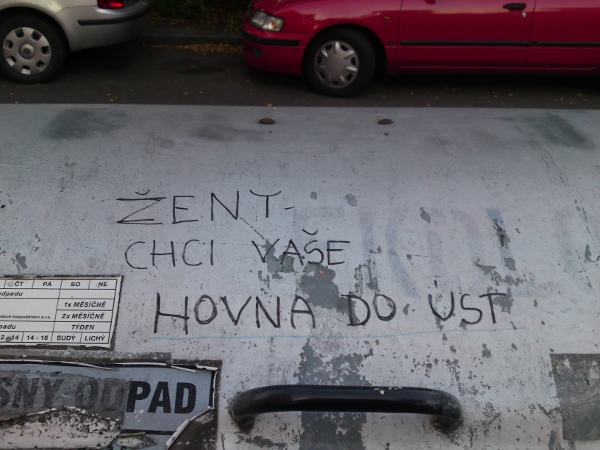 ŽENY-
CHCI VAŠE
HOVNA DO UST
ČT PÁ SO NE
odpadu
1x MĚSÍČNĚ
2x MĚSÍČNĚ
padu TÝDEN
14 14 - 18 SUDÝ LICHÝ
SNÝ ODPAD